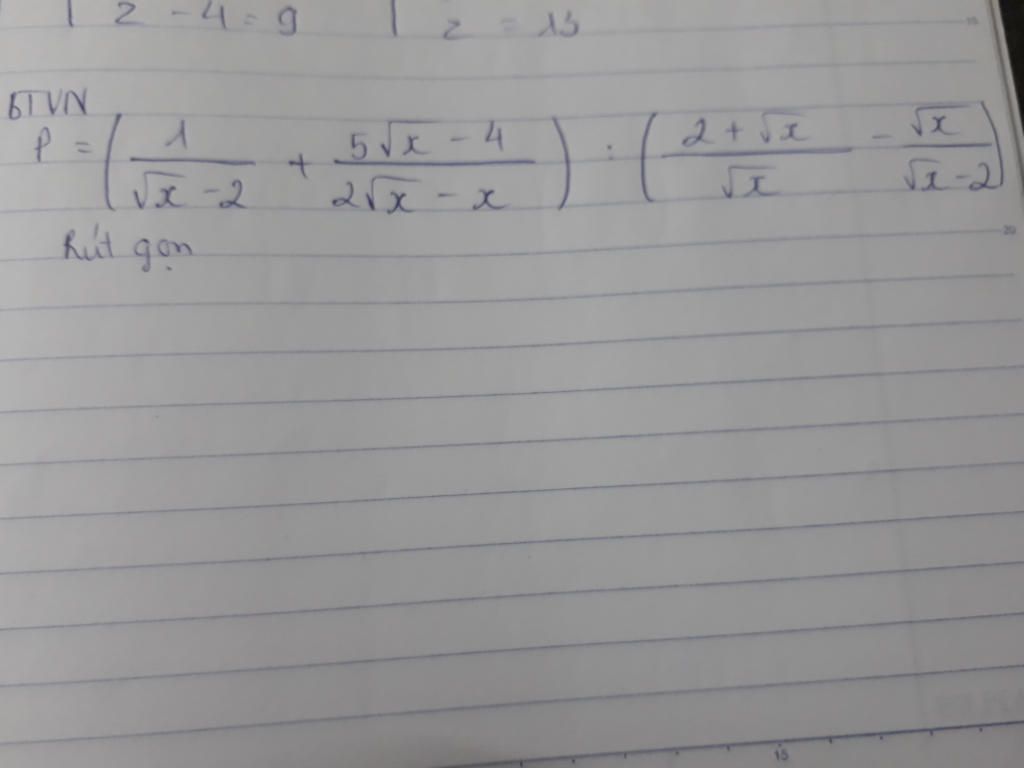 z - 4 = 9 | z = 13
BTVN
P = ( 1/(√x - 2) + (5√x - 4)/(2√x - x) ) : ( (2 + √x)/√x - √x/(√x - 2) )
Rút gọn
20
15